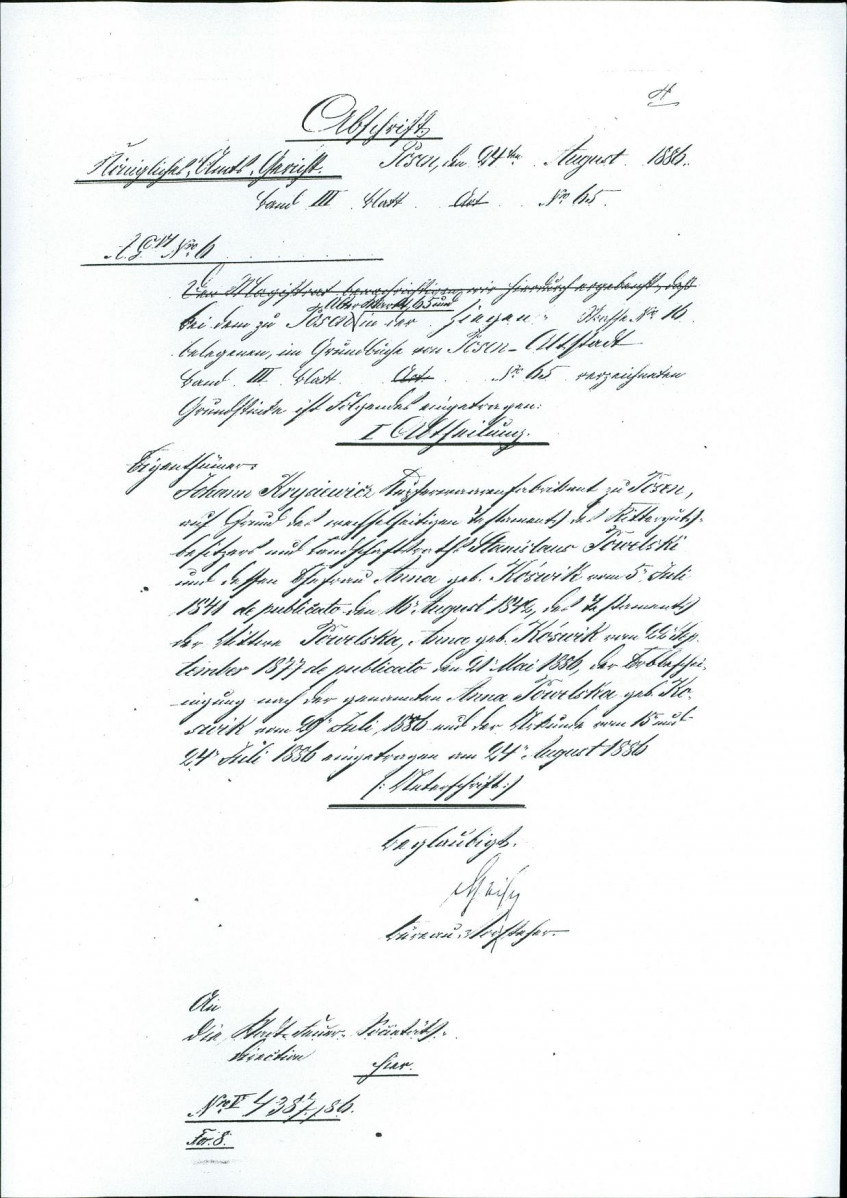 Abschrift.
Königliches Amts-Gericht. Posen, den 24ten August 1886.
Band III Blatt Art No 65.
No 6
Der Magistrat benachrichtigen wir hierdurch ergebenst, daß
Alter Markt 65 und
bei dem zu Posen in der Ziegen- Straße No 16
belegenen, im Grundbuche von Posen-Altstadt
Band III Blatt Art No 65 verzeichneten
Grundstücke ist Folgendes eingetragen:
I Abtheilung.
Eigenthümer:
Johann Krysiewicz Kupferwaarenfabrikant zu Posen,
auf Grund des wechselseitigen Testaments des Ritterguts-
besitzers und Landschaftsraths Stanislaus Powelski
und dessen Ehefrau Anna geb. Kóswik vom 5. Juli
1841 de publicato den 16. August 1842, des Testaments
der Wittwe Powelska, Anna geb. Kóswik vom Sep-
tember 1877 de publicato den 21. Mai 1886, der Erbbeschei-
nigung nach der genannten Anna Powelska geb. Ko-
swik vom 29. Juli 1886 und der Urkunde vom 15 und
24. Juli 1886 eingetragen am 24. August 1886
(: Unterschrift :)
Beglaubigt.
Büreau-Vorsteher.
An
die Stadt-Feuer-Societäts-
Direction
hier.
No VI 4387/86.
For. 8.